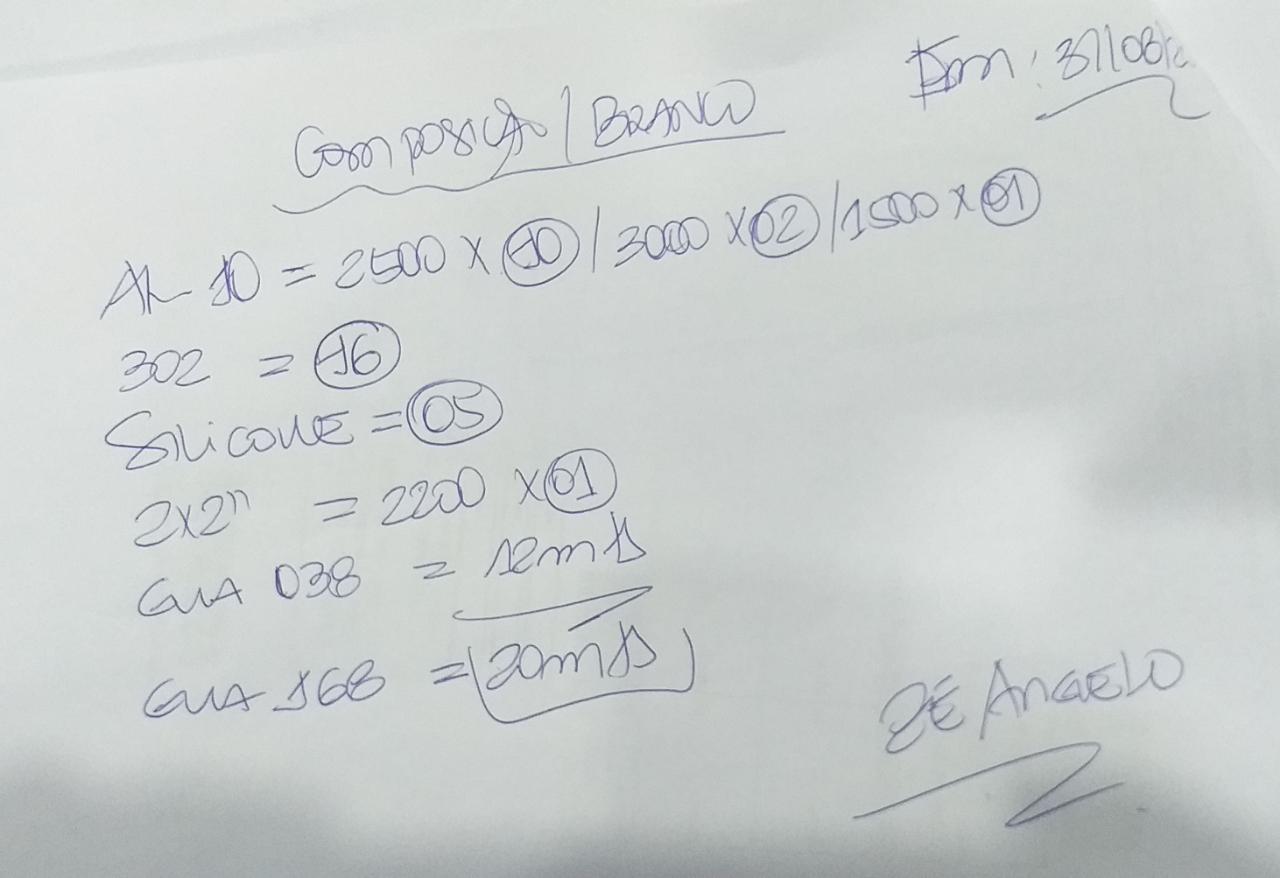 Em: 31/08/
Composição / BRANCO
AL 10 = 2500 x 10 / 3000 x 02 / 1500 x 01
302 = 16
Silicone = 05
2x2" = 2200 x 01
GUIA 038 = 12mts
GUIA 168 = 20mts
ZÉ ANGELO